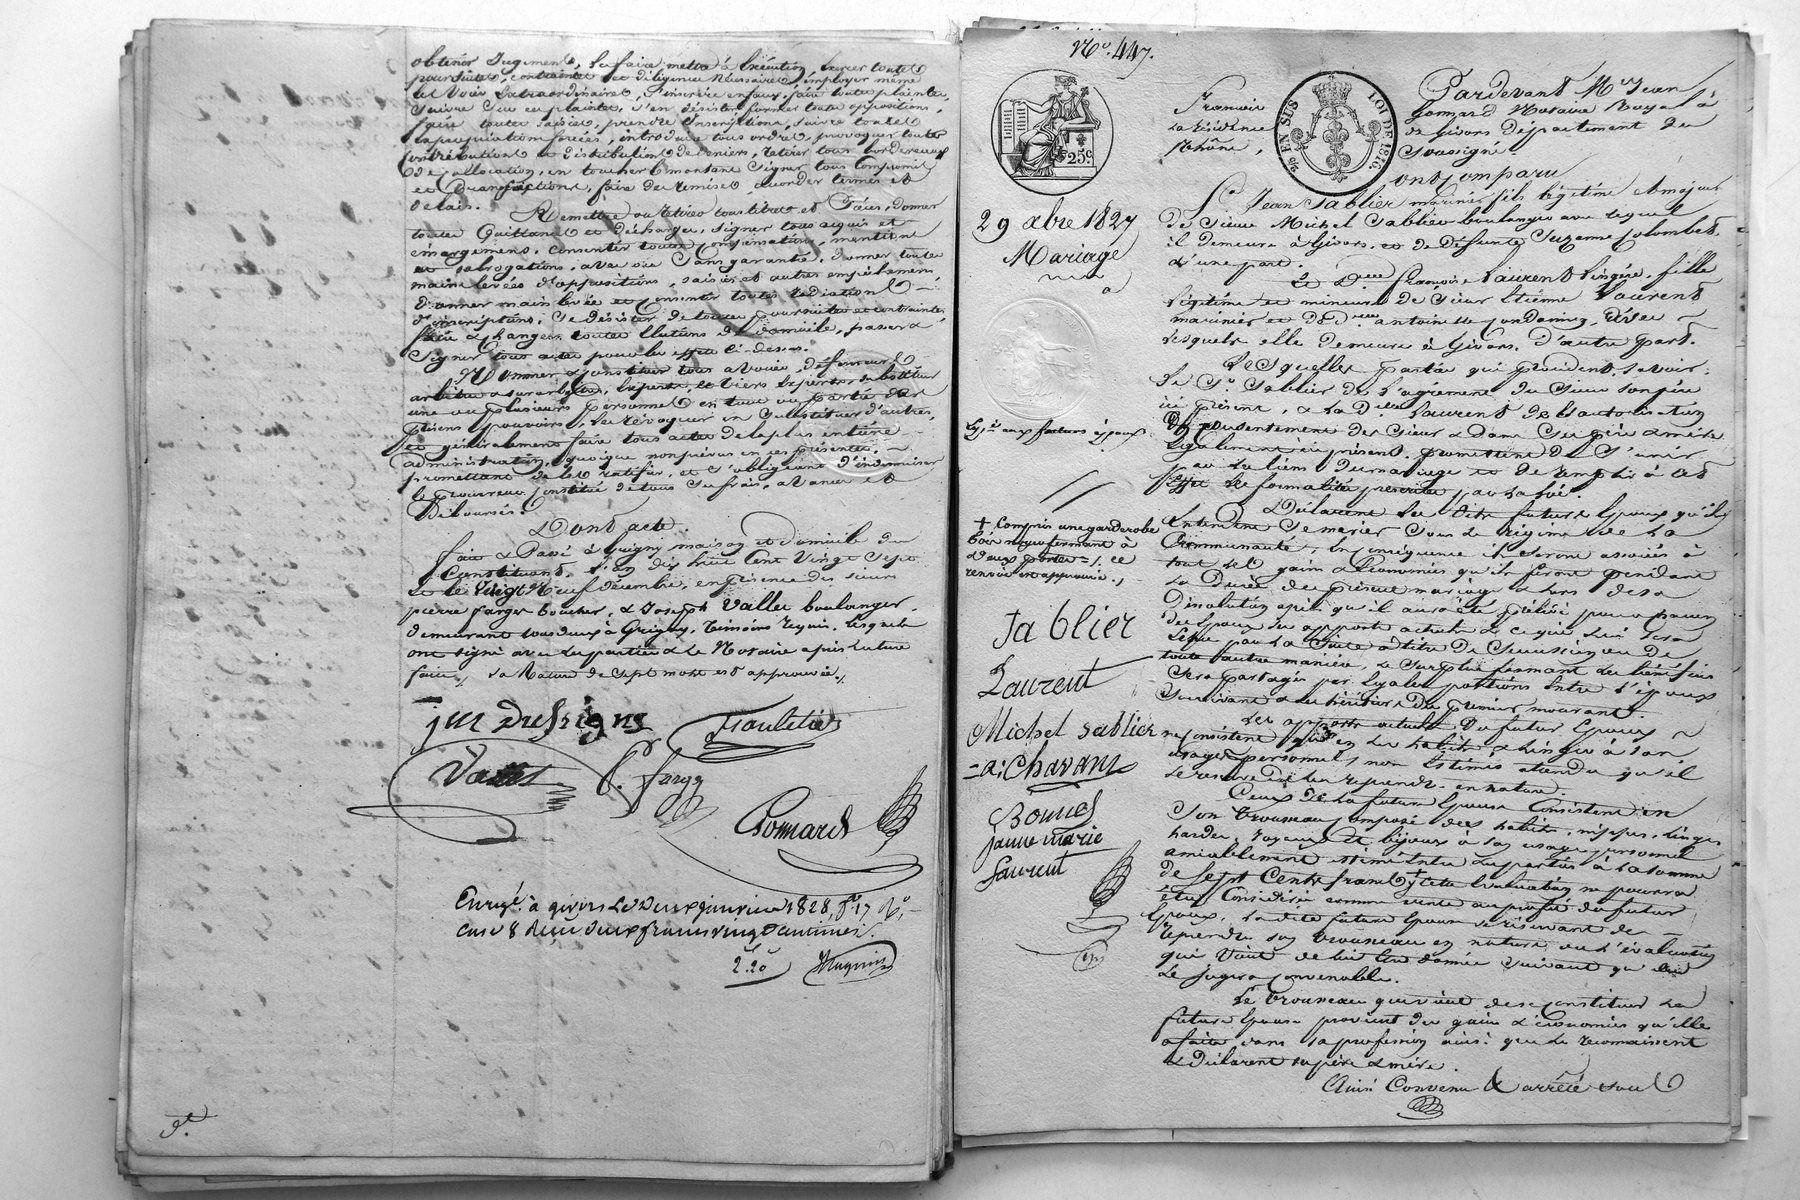 obtenir Jugement, les faire mettre à Exécution, exercer toutes
poursuites, contraintes et diligences nécessaires, employer même
les Voies Extraordinaires, S'inscrire en faux, faire toutes plaintes,
Suivre sur ces plaintes, s'en désister, former toutes oppositions,
faire toutes saisies, prendre Inscriptions, suivre toutes
Expropriations forcées, introduire tous ordres, provoquer toutes
Contributions et distributions de deniers, retirer tous bordereaux
de collocation, en toucher le montant Signer tous Compromis
et transactions, faire des remises accorder termes et
delais.
Remettre ou retirer tous titres et Pièces, donner
toutes Quittances et décharges, signer tous acquis et
émargemens, consentir toutes mentions
et subrogations, avec ou Sans garantie, donner toutes
main levées d'oppositions, saisies et autres empêchemens,
donner main levée et Consentir toutes radiations
d'inscriptions, Se désister de toutes poursuites et contraintes,
faire & changer toutes Elections de domicile, passer &
Signer tous actes pour les effets Ci-dessus.
Nommer & Constituer tous avoués, défenseurs,
arbitres & surarbitres, Experts, et tiers Experts substituer
une ou plusieurs personnes en tout ou partie des
présens pouvoirs, les révoquer en Substituer d'autres,
et généralement faire tous actes de la plus entière
administration, quoique non prévus en ces présentes,
promettant de les ratifier, et S'obligeant d'indemniser
le procureur Constitué de tous Ses frais, avances et
Déboursés.
Dont acte.
fait & Passé à Grigny maison et domicile du
Constituant, l'an dix huit Cent Vingt Sept
et le Vingt Neuf décembre, en présence des sieurs
pierre farges boucher, & Joseph Vallet boulanger,
demeurant tous deux à Grigny, témoins requis, lesquels
ont signé avec les parties & le Notaire après lecture
faite. La Rature de Sept mots est approuvée.
Vallet P. farge
Gomard
Enregé. à givors le deux janvier 1828, fo. 17 Ro.
case 8 Reçu deux francs vingt centimes.
2.20
No. 447.
25 c.
2/5 EN SUS LOI DE 1816.
29 xbre 1827
Mariage
Expé. aux futurs époux
+ Compris une garderobe
bois noyer fermant à
deux portes =/. ce
renvoi est approuvé ./
Sablier
Laurent
Michel sablier
Chavant
Bonnel
janne marie
Laurent
Pardevant Me. Jean
François Gomard Notaire Royal à
la Résidence de Givors Département du
Rhône, Soussigné
ont Comparu
Sr. Jean Sablier marinier fils légitime & majeur
de Sieur Michel Sablier boulanger avec lequel
il demeure à Givors, et de Défunte Suzanne Colombet,
d'une part.
Et Dlle. françoise Laurent lingère, fille
légitime et mineure de Sieur Etienne Laurent
marinier et de Dme. antoinette avec
lesquels elle demeure à Givors, D'autre part.
Lesquelles parties qui procèdent, savoir:
Le Sr. Sablier de l'agrément du Sieur son père
ici présent, & la Dlle. Laurent de l'autorisation
& Consentement des Sieur & dame Ses père & mère
également ici présens, promettent de S'unir
par les liens du mariage et de remplir à cet
effet les formalités prescrites par la loi.
Déclarent les dits futurs époux qu'ils
entendent Se marier Sous le régime de la
Communauté, en conséquence ils seront associés à
tout les gains & économies qu'ils feront pendant
la Durée du présent mariage & lors de sa
Dissolution après qu'il aura été prélevé pour chacun
des époux ses apports actuels & ce qui lui sera
échu par la Suite à titre de Succession ou de
toute autre manière, le Surplus formant les bénéfices
sera partagé par égales portions entre l'époux
Survivant & les héritiers du premier mourant.
Les apports actuels du futur époux
ne consistent qu'en ses habits & linges à son
usage personnel, non Estimés attendu qu'il
se réserve de les reprendre en nature.
Ceux de la future Epouse Consistent en
Son trousseau composé des habits, nippes, linges,
hardes, joyaux et bijoux à son usage personnel
amiablement estimé entre les parties à la somme
de Sept Cents francs,+ cette évaluation ne pourra
être Considérée comme vente au profit du futur
Epoux, la dite future épouse se réservant de
reprendre son trousseau en nature ou l'évaluation
qui vient de lui être donnée suivant qu'elle
le jugera convenable.
Le trousseau que vient de se constituer la
future épouse provient des gains & économies qu'elle
a faits dans sa profession ainsi que le reconnaissent
& Déclarent ses père & mère.
Ainsi Convenu & arrêté sous